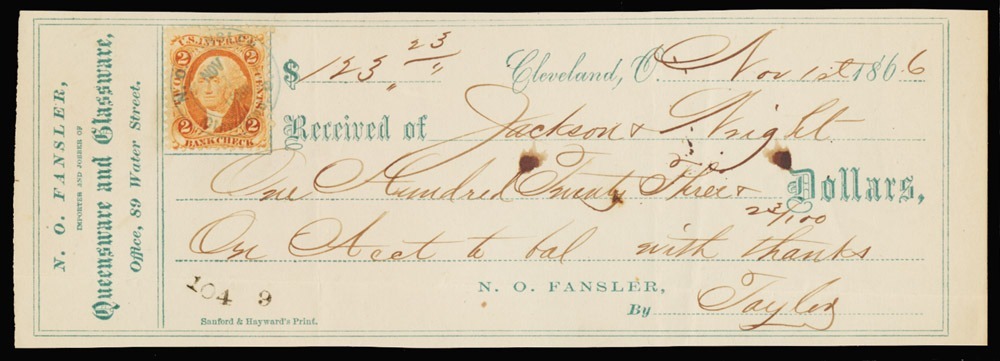 N. O. FANSLER,
IMPORTER AND JOBBER OF
Queensware and Glassware,
Office, 89 Water Street.
U.S. INTER. REV.
2 2
TWO CENTS
2 2
BANK CHECK
NOV
$ 123 23/"
Cleveland, O. Nov 1st 1866
Received of Jackson & Wright
One Hundred Twenty Three &
23/100 Dollars,
On Acct to bal with thanks
N. O. FANSLER,
By Taylor
104 9
Sanford & Hayward's Print.